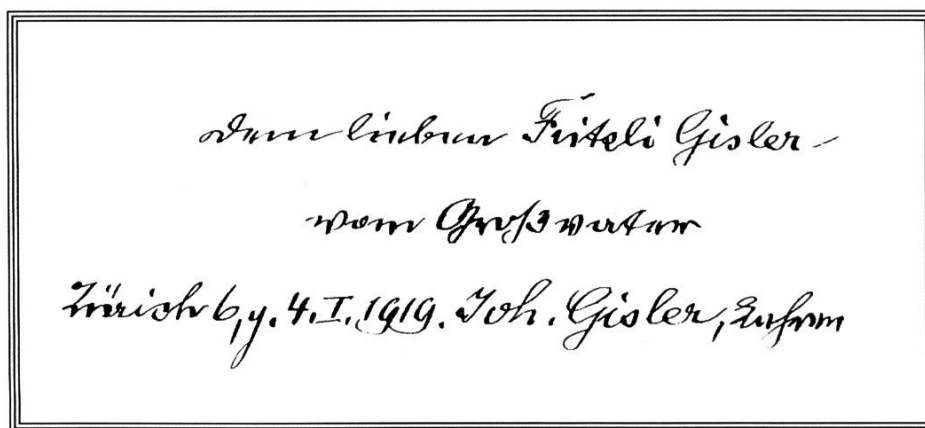 Dem lieben Fritzli Gisler
vom Großvater
Zürich 6, d. 4. I. 1919. Joh. Gisler, Lehrer